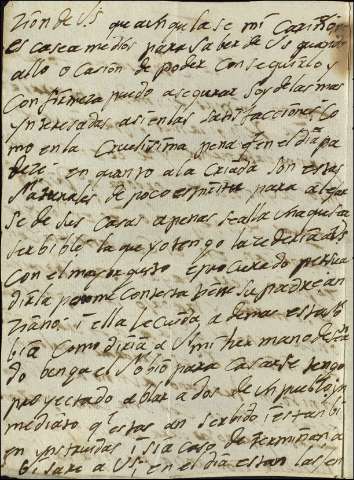 zion de Vs que aunque se mi Cariño
es casea medios para saber de Vs quando
allo o Casion de poder Conseguirlo y
Con firmeza puedo asegurar soy de las mas
Ynteresadas asi en las satisfacciones Co
mo en la Cruelisima pena qe en el dia pa
deze en quanto a la Criada son estas
Naturales de poco espiritu para alejar
se de sus Casas apenas se alla una que sea
serbible la que yo tengo la zederia a Vs
Con el mayor gusto e procurado persua
dirla pero me Contesta tiene su padre an
ziano i ella le Cuida a demas esta
bia Como diria a Vs mi hermano de
do benga el Nobio para Casarse tengo
proyectado ablar a dos de un pueblo in
mediato qe estas an serbido i estan bi
en ynstruidas i si a caso determinan a
bisare a Vs en el dia estan las en